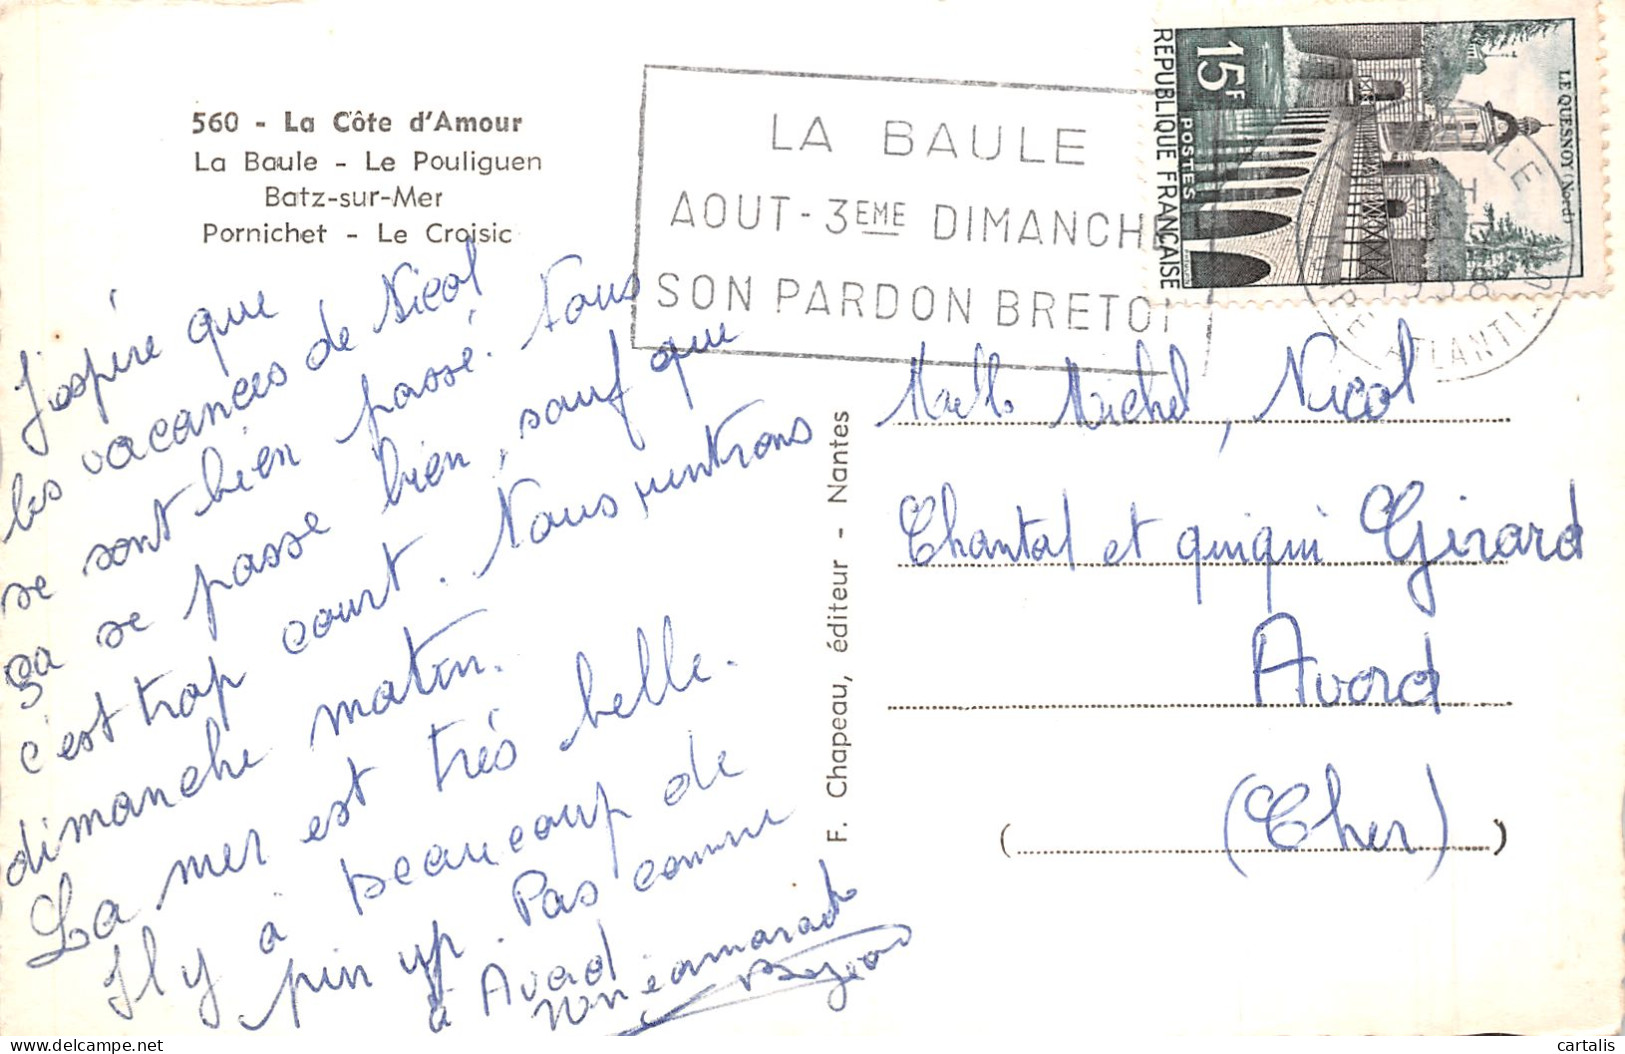 560 - La Côte d'Amour
La Baule - Le Pouliguen
Batz-sur-Mer
Pornichet - Le Croisic
J'espère que
les vacances de Nicol
se sont bien passé. Nous
ça se passe bien, sauf que
c'est trop court. Nous rentrons
dimanche matin.
La mer est très belle.
Il y à beaucoup de
pin up. Pas comme
à Avord
camarade
LA BAULE
AOUT - 3EME DIMANCHE
SON PARDON BRETO
15F
POSTES
REPUBLIQUE FRANÇAISE
LE QUESNOY (Nord)
ATLANTI
F. Chapeau, éditeur - Nantes
Michel, Nicol
Chantal et quiqui Girard
Avord
(Cher)
( )
cartalis